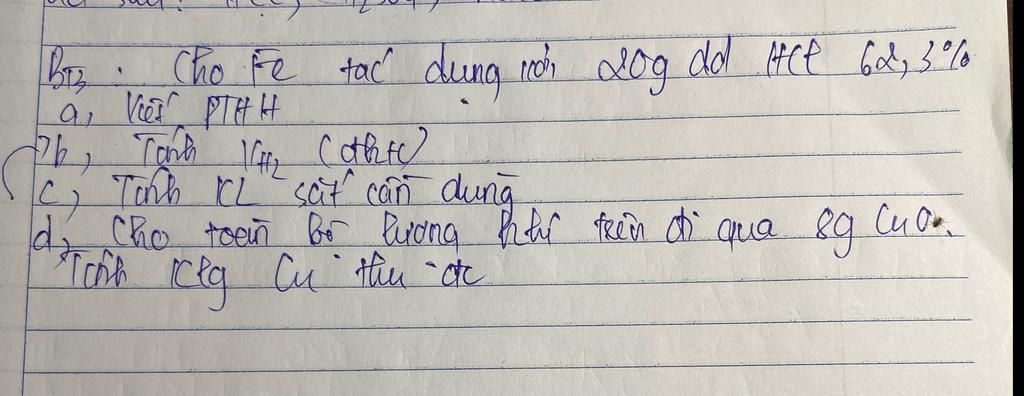 BT3 : Cho Fe tác dụng với 20g dd HCl 62,3%
a, Viết PTHH
b, Tính VH2 (đktc)
c, Tính KL sắt cần dùng
d, Cho toàn bộ lượng khí trên đi qua 8g CuO.
Tính Klg Cu thu đc